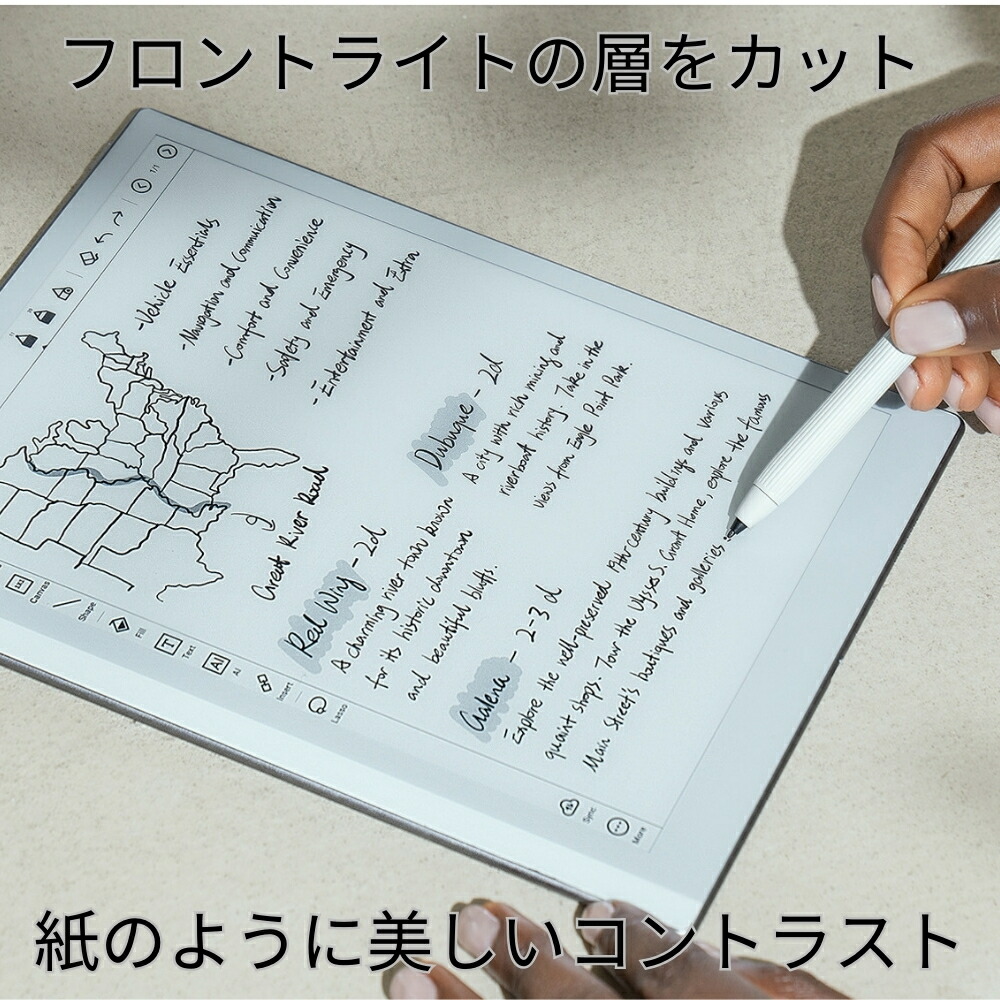 フロントライトの層をカット
1/1
-Vehicle Essentials
-Navigation and Communication
-Comfort and Convenience
-Safety and Emergency
-Entertainment and Extra
Great River Road
Red Wing - 2d
A charming river town known
for its historic downtown
and beautiful bluffs.
Dubuque - 2d
A city with rich mining and
riverboat history. Take in the
views from Eagle Point Park.
Galena - 2-3 d
Explore the well-preserved 19th-century buildings and various
quaint shops. Tour the Ulysses S. Grant Home, explore the famous
Main Street's boutiques and galleries.
Canvas
Shape
Fill
Text
AI
Insert
Lasso
Sync
More
紙のように美しいコントラスト